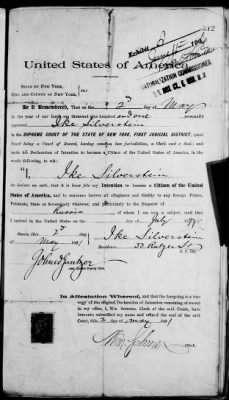 212
Exhibit B
NATURALIZATION COMMISSIONER
United States of America.
STATE OF NEW YORK,
CITY AND COUNTY OF NEW YORK,
Be it Remembered, That on the 2d day of May
in the year of our Lord one thousand nine hundred and one personally
appeared Ike Silverstein in the
SUPREME COURT OF THE STATE OF NEW YORK, FIRST JUDICIAL DISTRICT, (said
Court being a Court of Record, having common law jurisdiction, a Clerk and a Seal) and
made his Declaration of Intention to become a Citizen of the United States of America, in the
words following, to wit:
"I, Ike Silverstein
do declare on oath, that it is bona fide my intention to become a Citizen of the United
States of America, and to renounce forever all allegiance and fidelity to any foreign Prince,
Potentate, State or Sovereignty whatever, and particularly to the Emperor of
Russia of whom I am a subject
I arrived in the United States on the day of July
Sworn, this 2d
day of May 1901
Ike Silverstein
Residence: 37 Rutger St
In Attestation Whereof, and that the foregoing is a true
copy of the original Declaration of Intention remaining of record
in my office, I, Wm. Sohmer, Clerk of the said Court, have
hereunto subscribed my name and affixed the seal of the said
Court, this 2 day of May 1901
Wm Sohmer
Clerk.